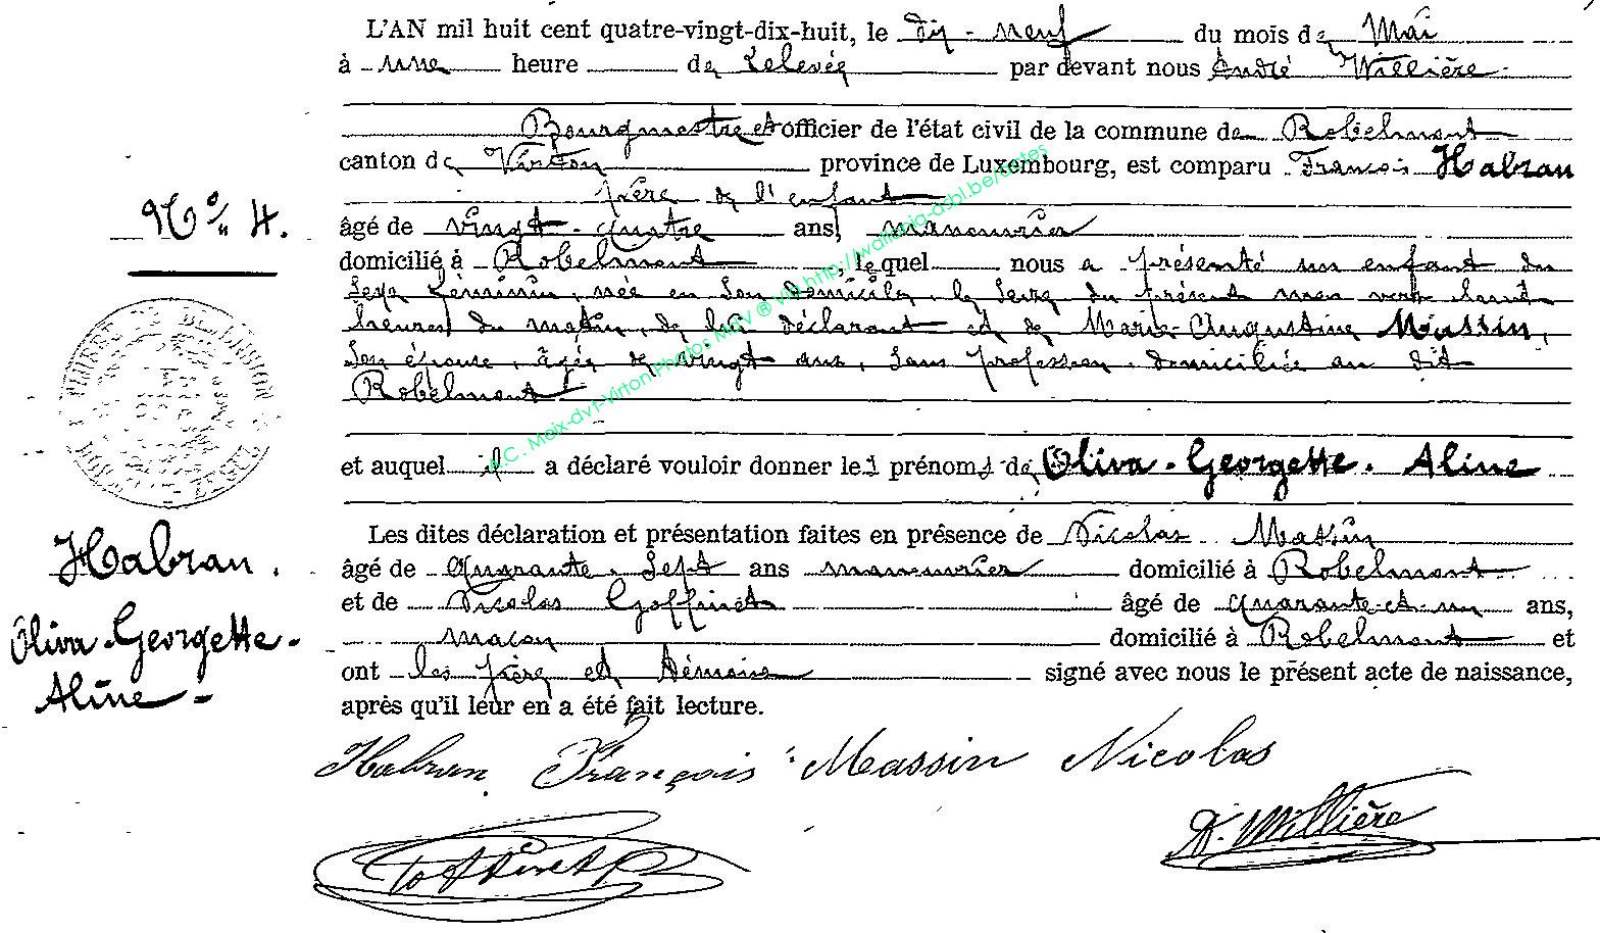 L'AN mil huit cent quatre-vingt-dix-huit, le dix-neuf du mois de Mai
à une heure de relevée par devant nous André Willière
Bourgmestre et officier de l'état civil de la commune de Robelmont
canton de Virton province de Luxembourg, est comparu François Habran
père de l'enfant
âgé de vingt-quatre ans, manouvrier
domicilié à Robelmont, lequel nous a présenté un enfant du
sexe féminin, née en son domicile, le seize du présent mois vers huit
heures du matin, de lui déclarant et de Marie-Augustine Massin,
son épouse, âgée de vingt ans, sans profession, domiciliée au dit
Robelmont
et auquel il a déclaré vouloir donner les prénoms de Oliva-Georgette-Aline
Les dites déclaration et présentation faites en présence de Nicolas Massin
âgé de quarante-sept ans manouvrier domicilié à Robelmont
et de Nicolas Goffinet âgé de quarante-et-un ans,
maçon domicilié à Robelmont et
ont les père et témoins signé avec nous le présent acte de naissance,
après qu'il leur en a été fait lecture.
Habran François Massin Nicolas
Goffinet
A. Willière
No 4.
Habran.
Oliva-Georgette-
Aline-
A.C. Meix-dvt-Virton Photos MdV ® via http://wallonia-asbl.be/actes